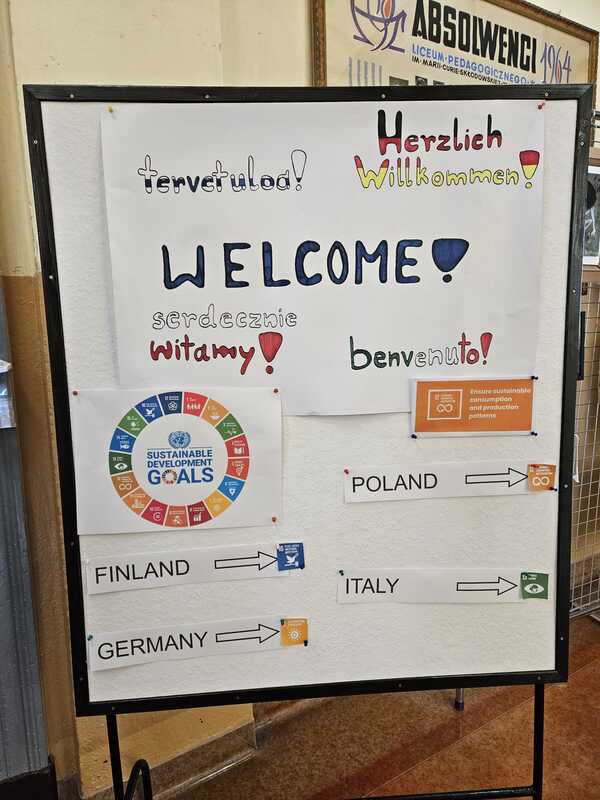 ABSOLWENCI 1964
LICEUM PEDAGOGICZNEGO
IM. MARII CURIE-SKŁODOWSKIEJ
tervetuloa!
Herzlich
Willkommen!
WELCOME!
serdecznie
witamy!
benvenuto!
SUSTAINABLE
DEVELOPMENT
GOALS
Ensure sustainable
consumption
and production
patterns
POLAND
FINLAND
ITALY
GERMANY